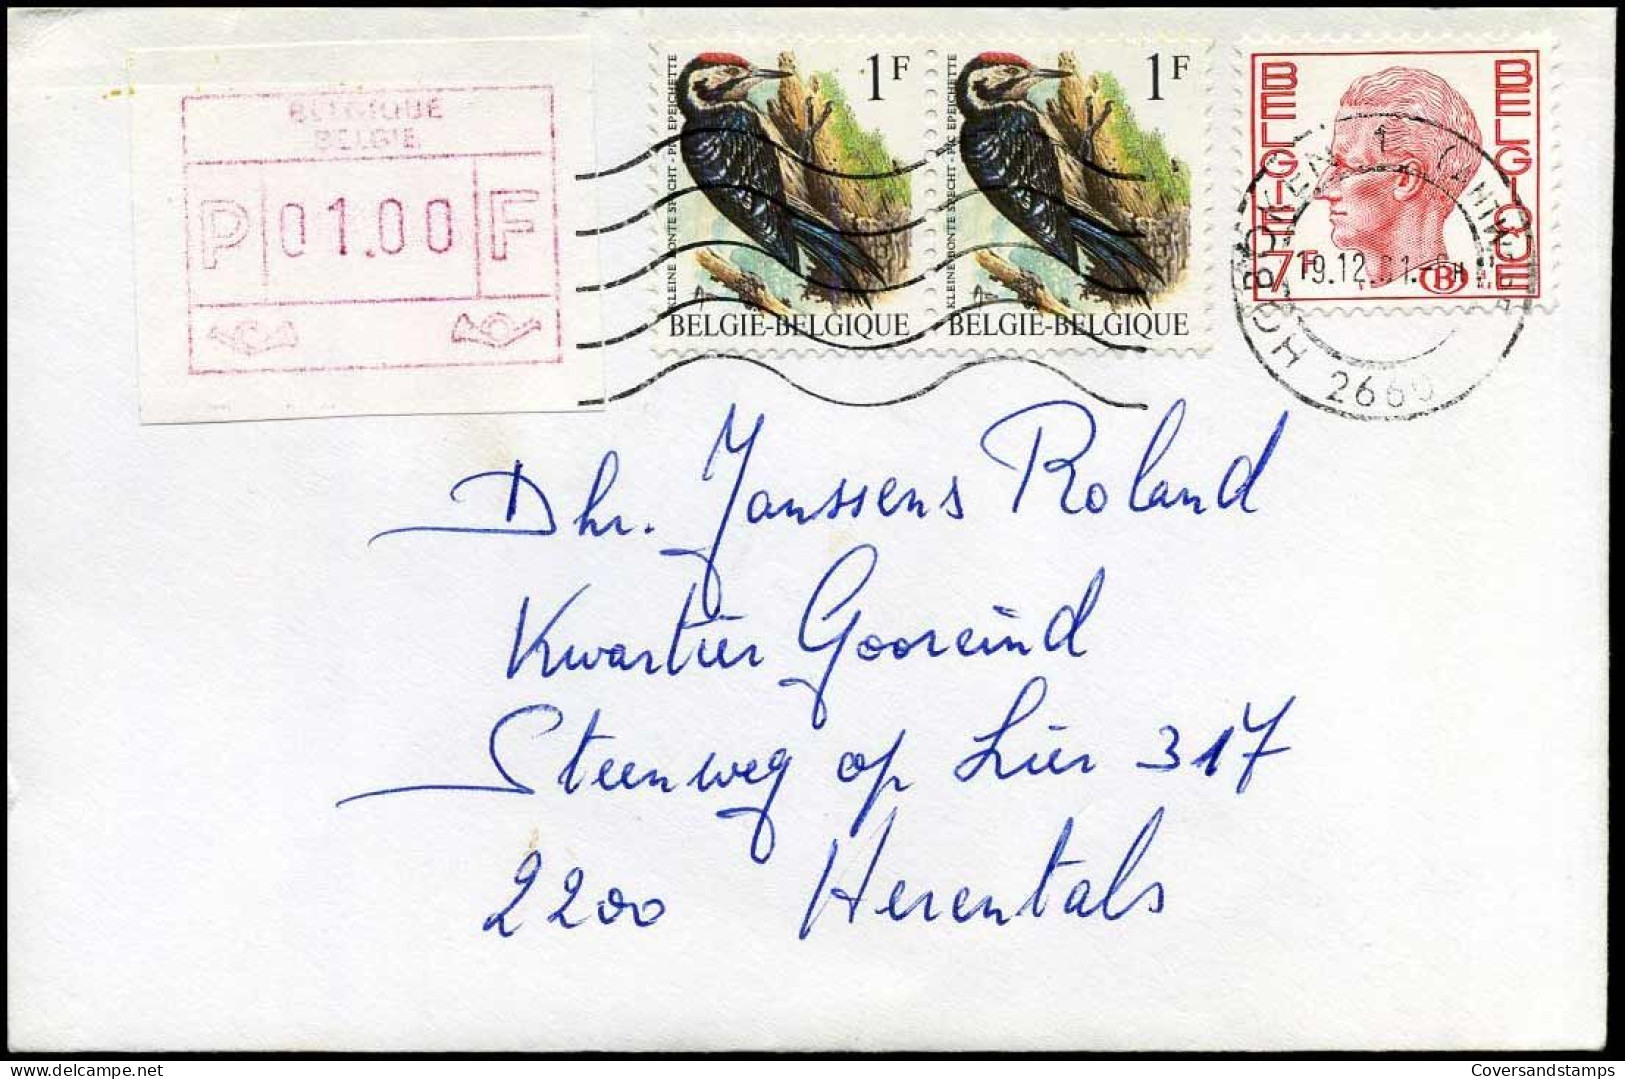 BELGIQUE
BELGIE
P 01.00 F
KLEINE BONTE SPECHT - PIC EPEICHETTE
1F
BELGIE-BELGIQUE
KLEINE BONTE SPECHT - PIC EPEICHETTE
1F
BELGIE-BELGIQUE
BELGIE
BELGIQUE
7F
B
HOBOKEN 1 (ANTWERPEN)
19.12
2660
Dhr. Janssens Roland
Kwartier Gooreind
Steenweg op Lier 317
2200 Herentals
Coversandstamps